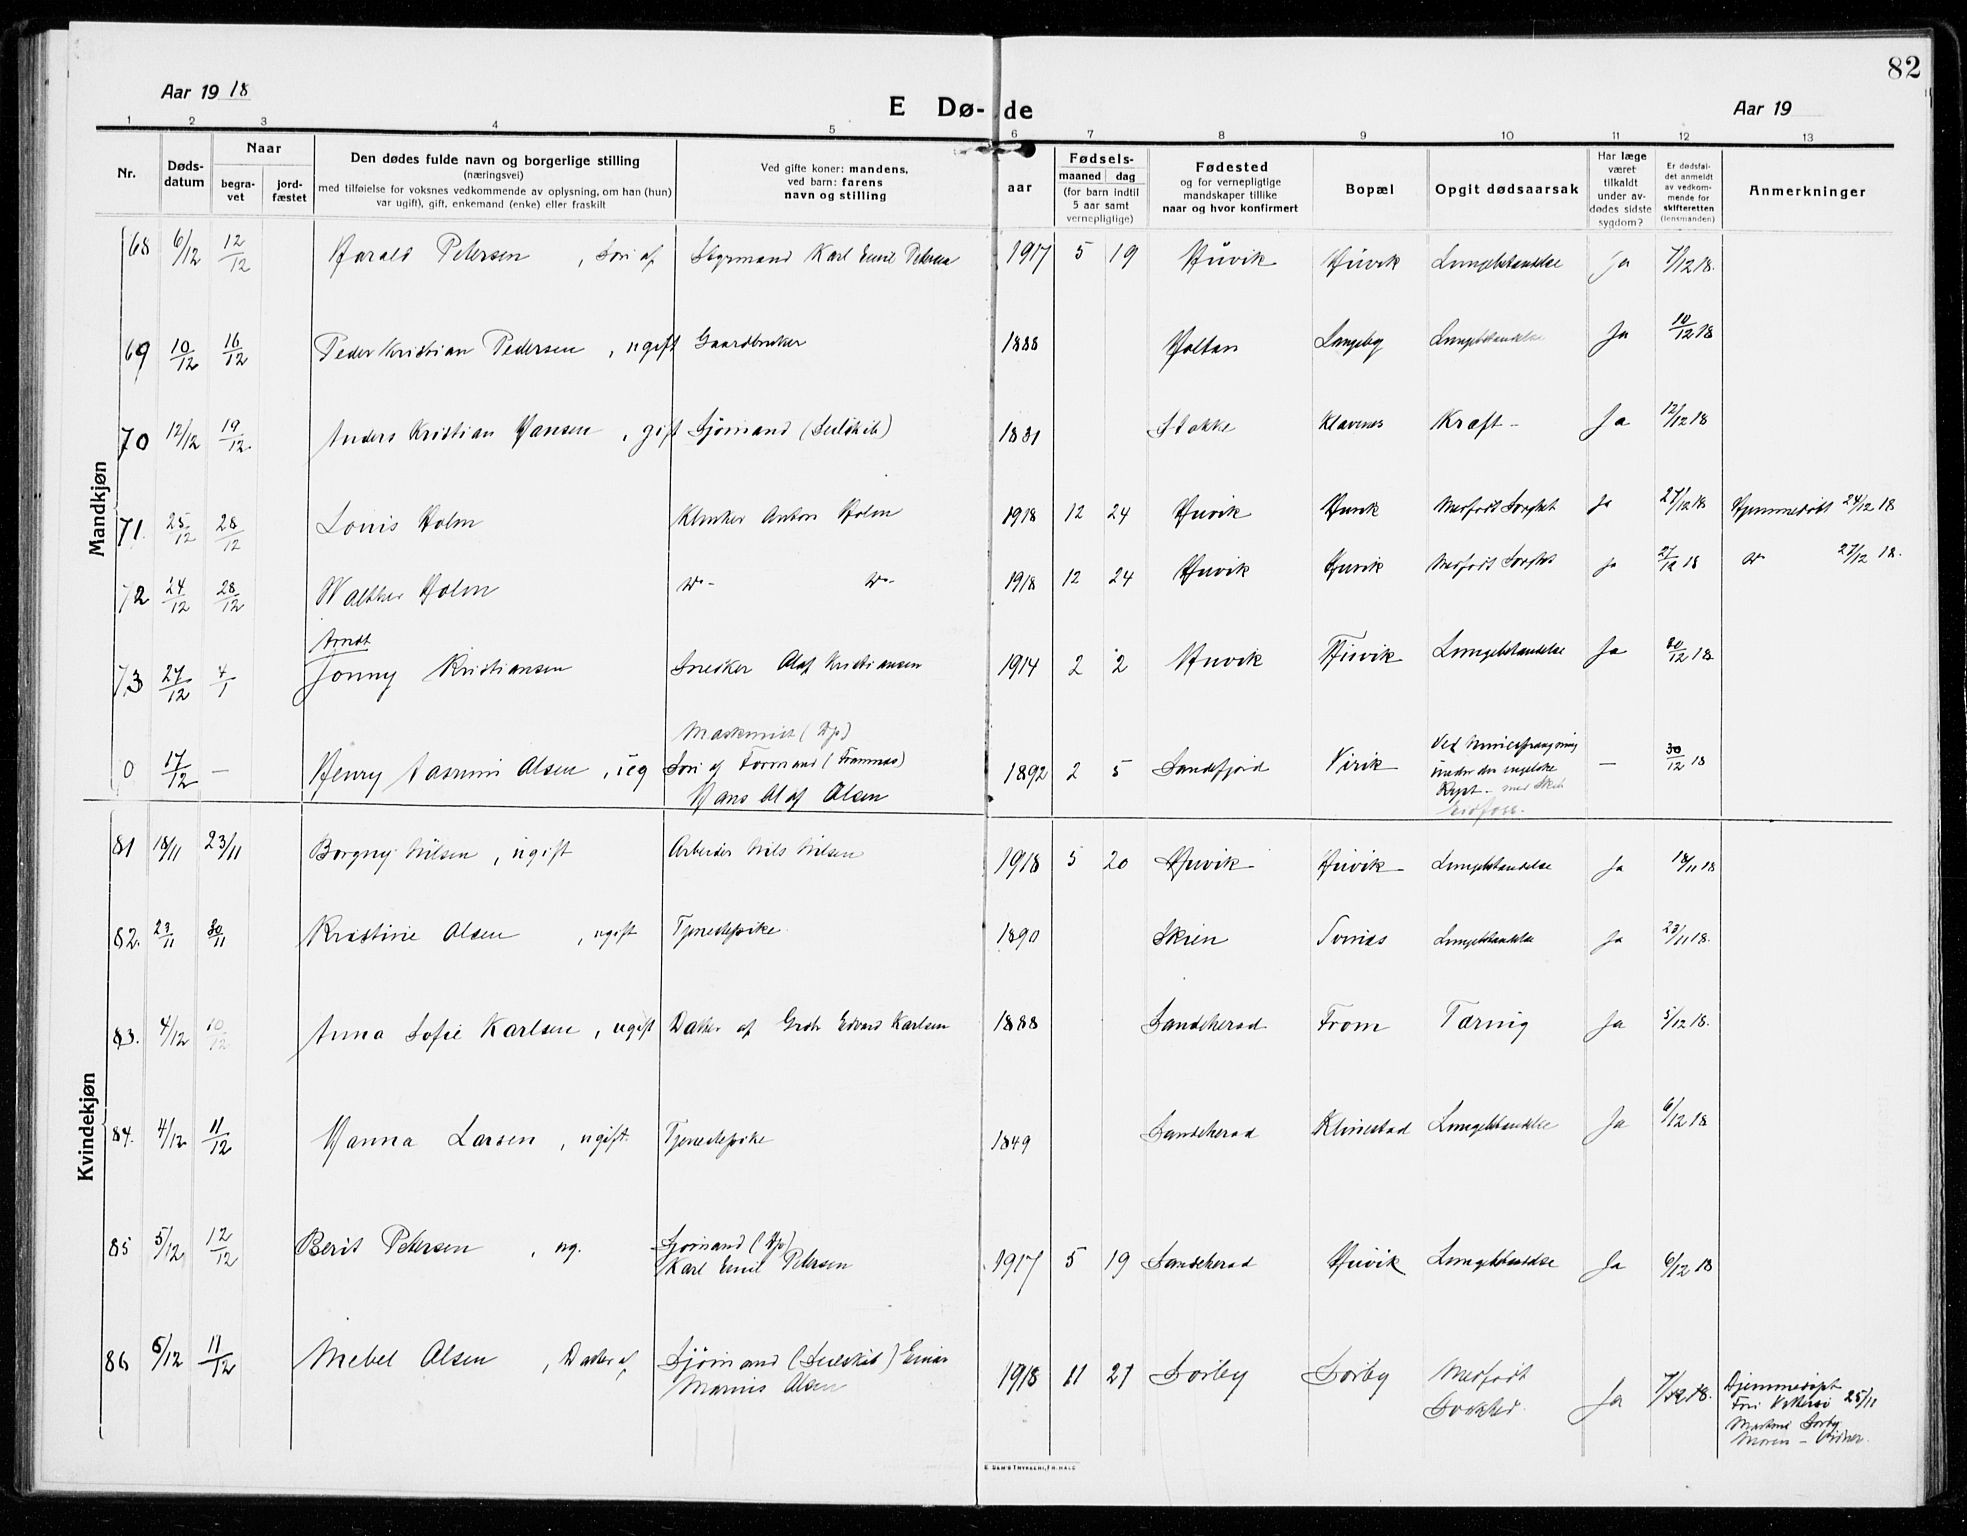 82
Aar 19 18
E Dø-de
Aar 19
1 2 3 4 5 6 7 8 9 10 11 12 13
Nr.
Døds-
datum
Naar
begra-
vet
jord-
fæstet
Den dødes fulde navn og borgerlige stilling
(næringsvei)
med tilføielse for voksnes vedkommende av oplysning, om han (hun)
var ugift), gift, enkemand (enke) eller fraskilt
Ved gifte koner: mandens,
ved barn: farens
navn og stilling
aar
Fødsels-
maaned dag
(for barn indtil
5 aar samt
vernepligtige)
Fødested
og for vernepligtige
mandskaper tillike
naar og hvor konfirmert
Bopæl
Opgit dødsaarsak
Har læge
været
tilkaldt
under av-
dødes sidste
sygdom?
Er dødsfal-
det anmeldt
av vedkom-
mende for
skifteretten
(lensmanden)
Anmerkninger
Mandkjøn
68 6/12 12/12 Harald Petersen , Søn af Styrmand Karl Emil Petersen 1917 5 19 Huvik Huvik Lungebetændelse Ja 7/12 18.
69 10/12 16/12 Peder Kristian Pedersen , ugift Gaardbruker 1888 Holtan Langeby Lungebetændelse Ja 10/12 18
70 12/12 19/12. Anders Kristian Hansen , gift Sjømand (Seilskib) 1881 Stokke Klavenes Kræft - Ja 12/12 18
71. 25/12 28/12 Louis Holm Klinker Anton Holm 1918 12 24 Huvik Huvik Medfødt Ja 27/12 18 Hjemmedøbt 24/12 18
72 24/12 28/12 Walther Holm 1918 12 24 Huvik Huvik Medfødt Ja 27/12 18 27/12 18.
Arndt
73 27/12 4/1 Jonny Kristiansen Snedker Olaf Kristiansen 1914 2 2 Huvik Huvik Lungebetændelse Ja 30/12 18
Maskinist
0 17/12 — Henry Olsen , ug Søn af Formand (Framnæs) 1892 2 5 Sandefjord Virik Ved Minesprængning — 30/12 18
under den engelske
Hans Olaf Olsen
Kyst - med Skib
Kvindekjøn
81 18/11 23/11 Borgny Nilsen , ugift Arbeider Nils Nilsen 1918 5 20 Huvik Huvik Lungebetændelse Ja 18/11 18
82. 23/11 30/11 Kristine Olsen , ugift Tjenestepike 1890 Skien Lungebetændelse Ja 23/11 18.
83. 4/12 10/12 Anna Sofie Karlsen , ugift Datter af Edvard Karlsen 1888 Sandeherad From Tæring Ja 5/12 18.
84. 4/12 11/12 Hanna Larsen , ugift. Tjenestepike 1849 Sandeherad Klinestad Lungebetændelse Ja 6/12 18
85 5/12 12/12 Berit Petersen , ug. Sjømand 1917 5 19 Sandeherad Huvik Lungebetændelse Ja 6/12 18
Karl Emil Petersen
86 5/12 11/12 Mebel Olsen , Datter af Sjømand (Seilskib) Einar 1918 11 21 Sørby Sørby Medfødt Ja 7/12 18.
Marius Olsen
Svakhed.
Hjemmedøpt
25/11
Sørby
E. SEM'S TRYKKERI, FR.HALD